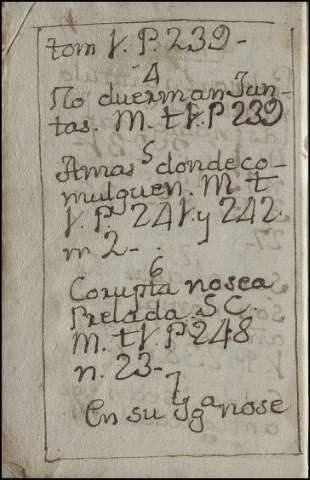 tom 1. P. 239-
4
No duerman Jun-
tas. M. t 1. P 239
5
Amas donde co-
mulguen. M t
1. P. 241. y 242.
n 2-
6
Corupta nosea
Prelada. SC.
M. t 1. P 248
n. 23-
7
En su Yga nose